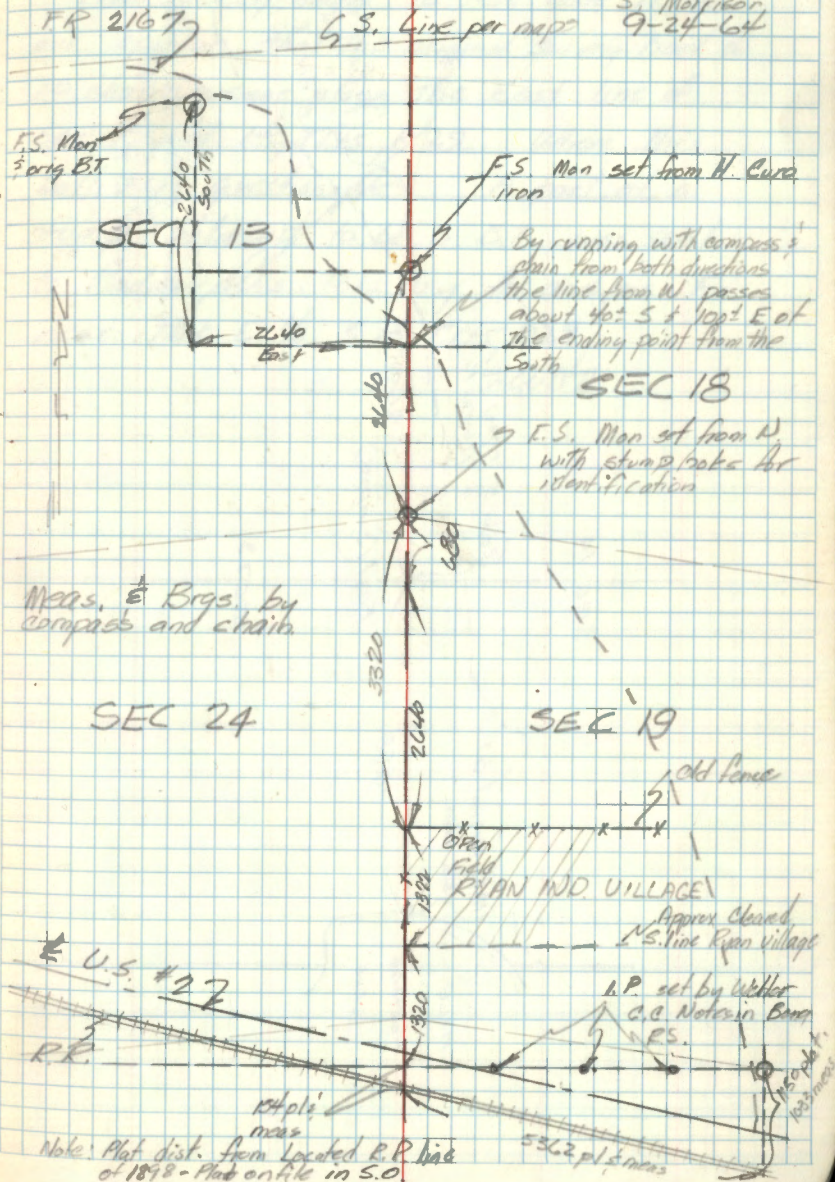 S. Morrison
9-24-64
FR 2167
S. Line per map
F.S. Mon
& orig B.T.
2640
South
F.S. Mon set from N.
iron
SEC 13
By running with compass &
chain from both directions
the line from W. passes
about 40± S & 100± E of
the ending point from the
South
2640
East
SEC 18
2640
F.S. Mon set from N.
with stump holes for
identification
680
Meas. & Brgs. by
compass and chain.
3320
SEC 24
SEC 19
2640
old fence
Open
Field
1322
RYAN IND. VILLAGE
Approx Cleared
S. line Ryan village
U.S. #27
I.P. set by
C.C. Notes in
R.S.
1320
R.R.
1150 plat
1033 meas
154 pl &
meas
5362 pl & meas
Note: Plat dist. from Located R.R. line
of 1898 - Plat on file in S.O